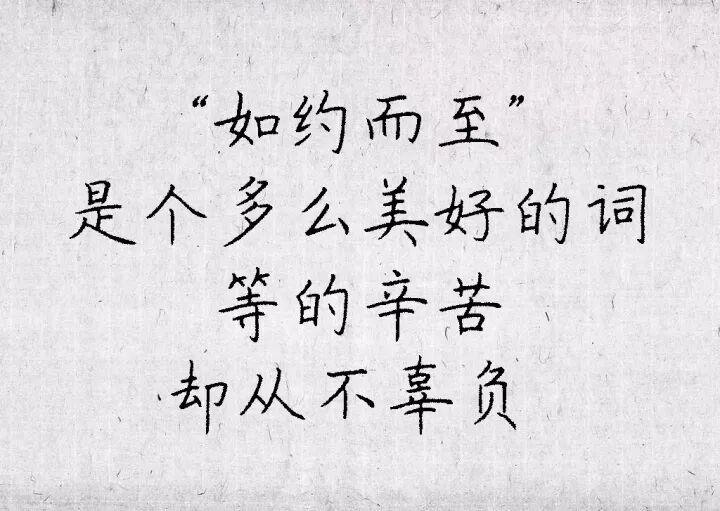 “如约而至”
是个多么美好的词
等的辛苦
却从不辜负